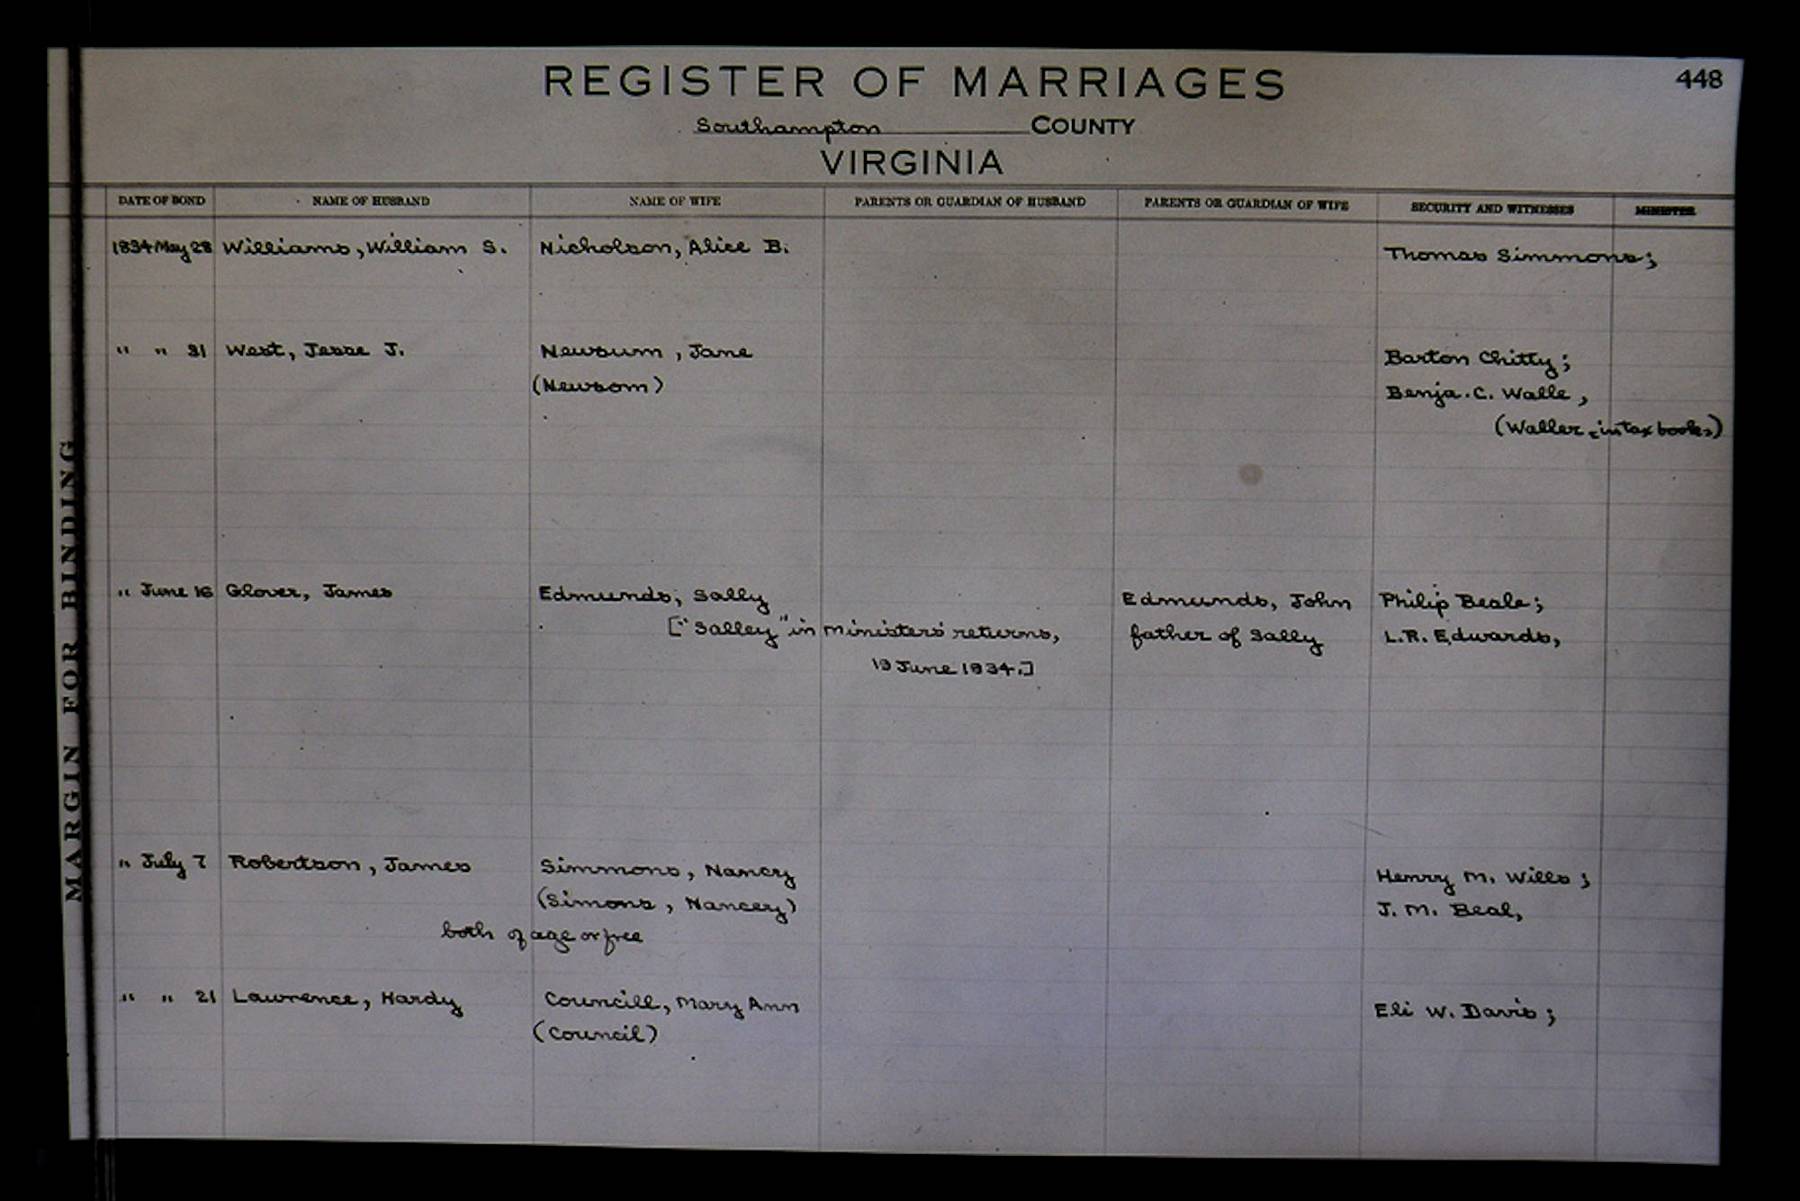 REGISTER OF MARRIAGES
448
Southampton COUNTY
VIRGINIA
DATE OF BOND NAME OF HUSBAND NAME OF WIFE PARENTS OR GUARDIAN OF HUSBAND PARENTS OR GUARDIAN OF WIFE SECURITY AND WITNESSES MINISTER
1834 May 28 Williams, William S. Nicholson, Alice B. Thomas Simmons;
" " 31 West, Jesse J. Newsum, Jane Barton Chitty;
(Newsom) Benja. C. Walle,
(Waller - in tax books)
" June 16 Glover, James Edmunds, Sally Edmunds, John Philip Beale;
["Salley" in ministers' returns, father of Sally L.R. Edwards,
19 June 1834.]
" July 7 Robertson, James Simmons, Nancy Henry M. Wills;
(Simons, Nancey) J. M. Beal,
both of age or free
" " 21 Lawrence, Hardy Councill, Mary Ann Eli W. Davis;
(Council)
MARGIN FOR BINDING